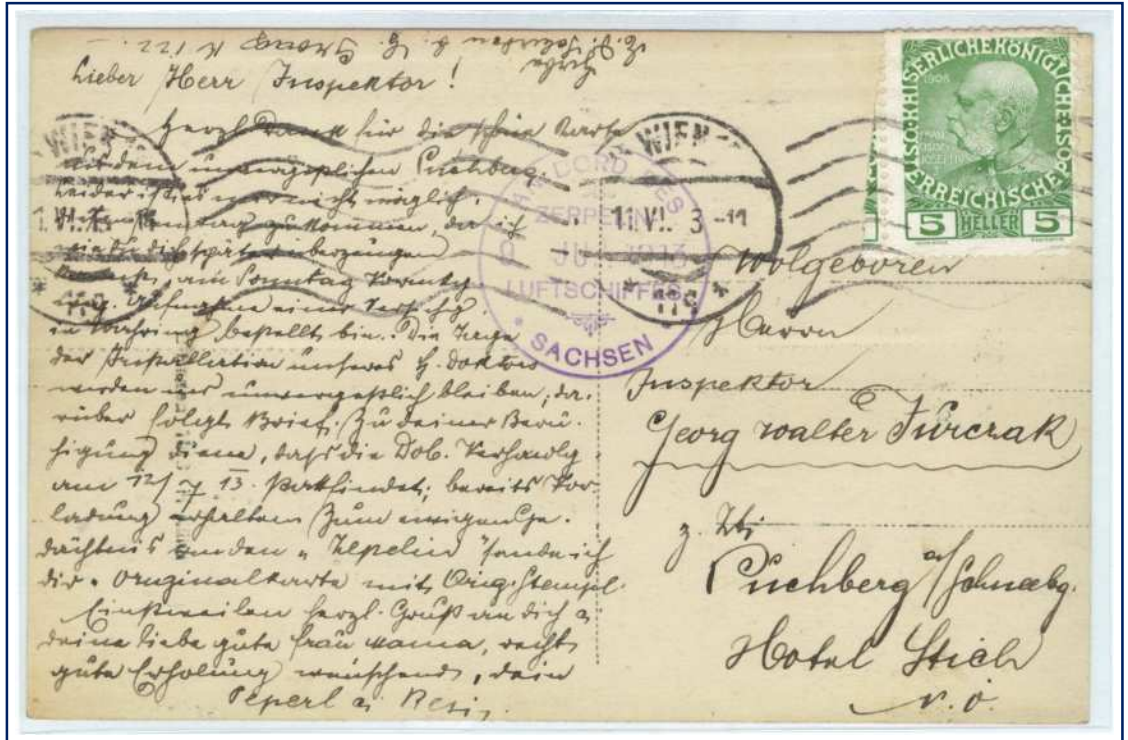 Lieber Herr Inspektor!
Herzl. Dank für die schöne Karte
aus dem unvergeßlichen Puchberg.
Leider ist es mir nicht möglich,
zu kommen, da ich
wie du dich später überzeugen
am Sonntag Vormittg
einer
in Währing bestellt bin. Die Tage
der Installation unseres H. Doktors
werden mir unvergeßlich bleiben, da-
rüber folgt Brief. Zu deiner Beru-
higung diene, daß die Dob. Verhandlg
am 12/7 13. stattfindet; bereits Vor-
ladung erhalten. Zum ewigen Ge-
dächtnis an den „Zepelin" sende ich
dir Originalkarte mit Orig. Stempel.
Einstweilen herzl. Gruß an dich u
deine liebe gute Frau Mama, recht
gute Erholung wünschend, dein
Peperl u. Resi
WIEN
WIEN
11.VI. 3-11
* 119 *
* 119 *
AN BORD DES
ZEPPELIN
JUN. 1913
LUFTSCHIFFES
* SACHSEN *
KAISERLICHE KÖNIGLICHE ÖSTERREICHISCHE POST
1908
FRANZ JOSEF I
5 HELLER 5
Wolgeboren
Herrn
Inspektor
Georg Walter Turczak
z. Zt.
Puchberg a/Schneebg.
Hotel Stich
N.Ö.